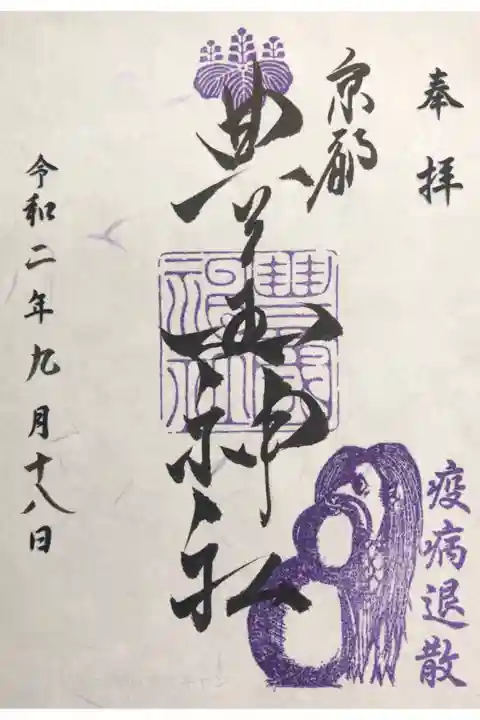 奉拝
京都
豊国神社
豊國神社
令和二年九月十八日
疫病退散